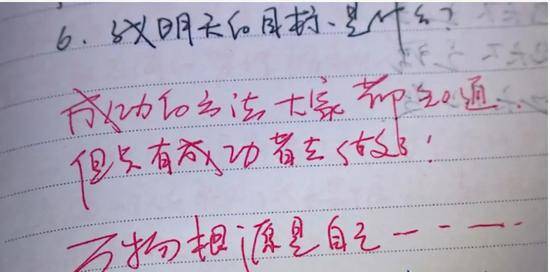 6. 我明天的目标是什么?
成功的方法大家都知道.
但只有成功者去做了!
万物根源是自己————